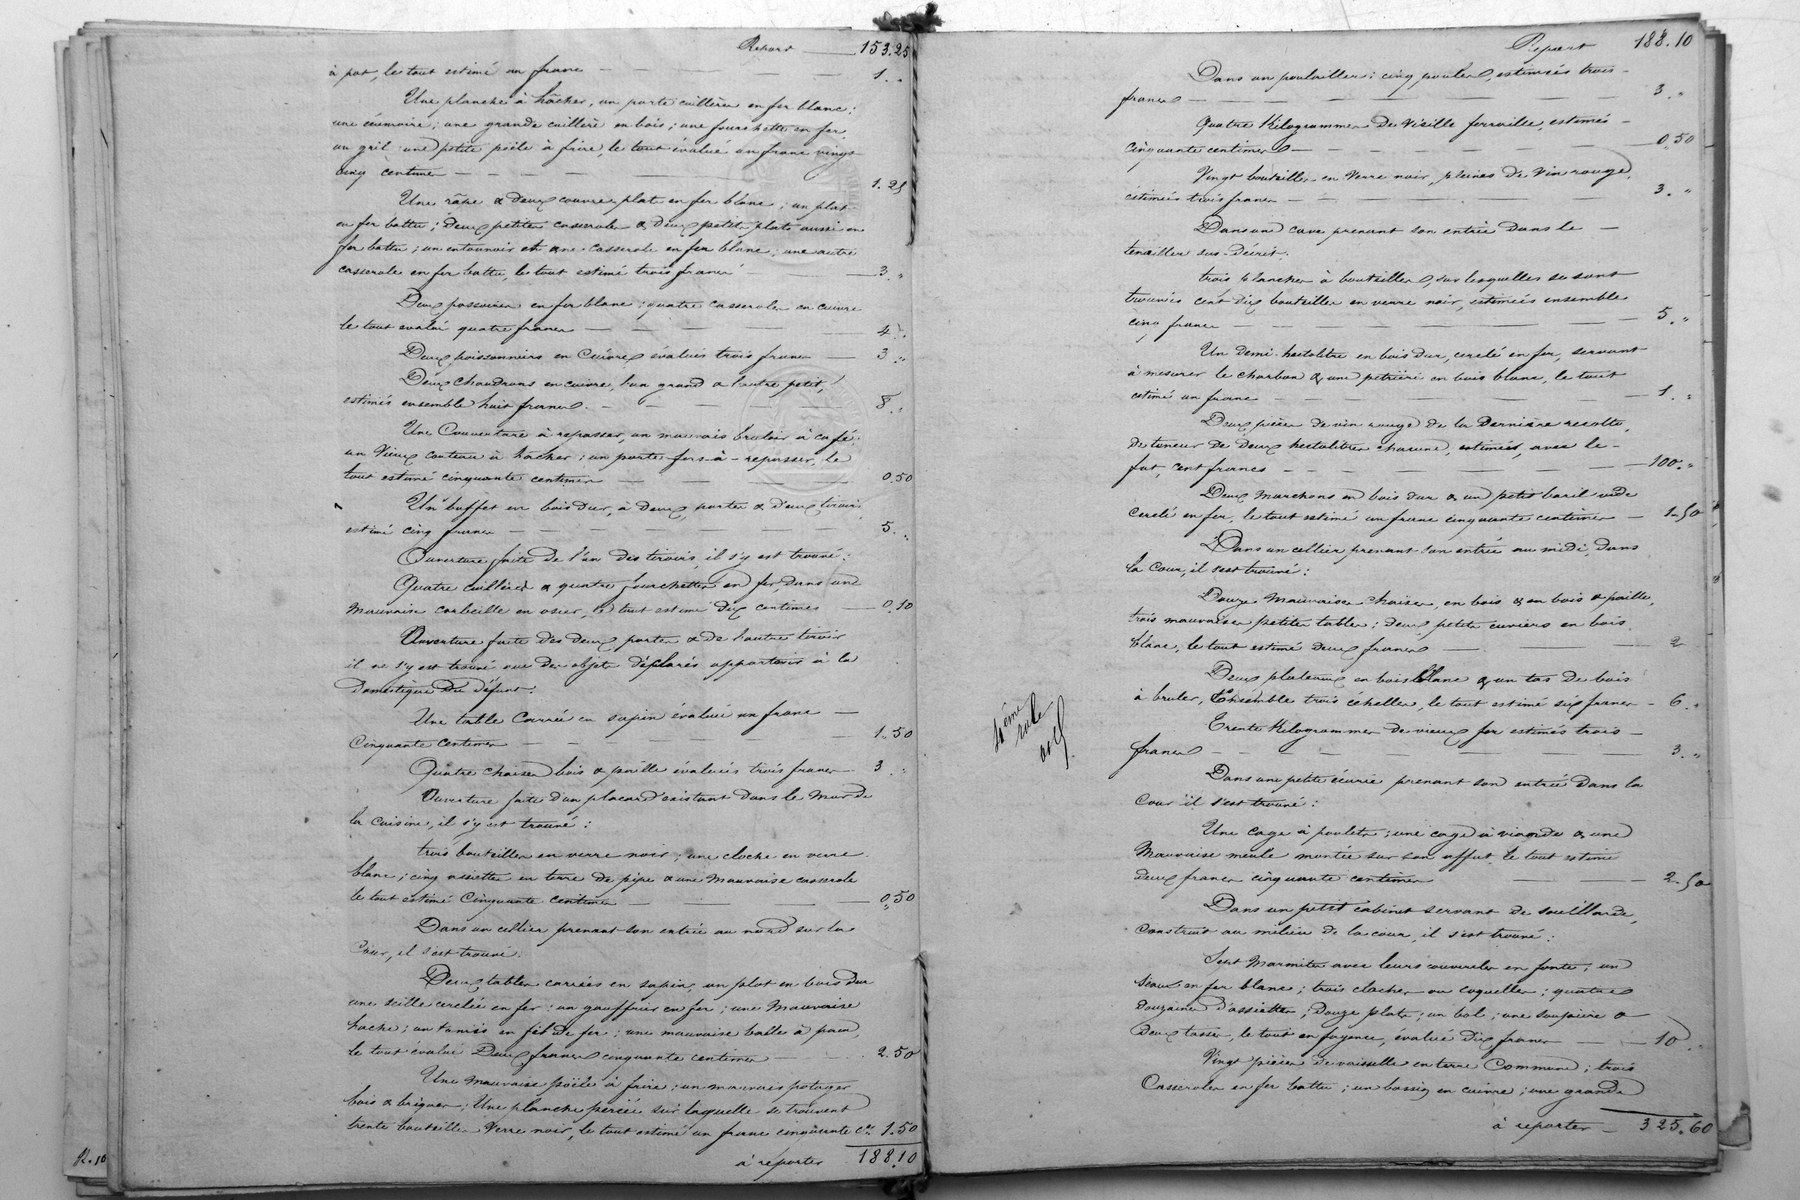 Report 153.25
à pot, le tout estimé un franc 1."
Une planche à hâcher, un porte cuillères en fer blanc;
une écumoire; une grande cuillère en bois; une fourchette en fer,
un gril une petite poële à frire, le tout évalué un franc vingt
cinq centimes 1.25
Une râpe & deux couvre plat en fer blanc; un plat
en fer battu; deux petites casseroles & deux petits plats aussi en
fer battu; un entonnoir et une casserole en fer blanc; une autre
casserole en fer battu, le tout estimé trois francs 3 "
Deux passoires en fer blanc; quatre casseroles en cuivre
le tout évalué quatre francs 4 "
Deux poissonniers en cuivre évalués trois francs 3 "
Deux chaudrons en cuivre, l'un grand & l'autre petit,
estimés ensemble huit francs. 8 "
Une Couverture à repasser, un mauvais bruloir à café
un vieux couteau à hâcher; un porte-fers-à-repasser, le
tout estimé cinquante centimes 0.50
Un buffet en bois dur, à deux portes & deux tiroirs
estimé cinq francs 5. "
Ouverture faite de l'un des tiroirs, il s'y est trouvé:
Quatre cuillères & quatre fourchettes en fer, dans une
mauvaise corbeille en osier, le tout estimé dix centimes 0.10
Ouverture faite des deux portes & de l'autre tiroir
il ne s'y est trouvé que des objets déclarés appartenir à la
domestique du défunt.
Une table carrée en sapin évalué un franc
cinquante centimes 1.50
Quatre chaises bois & paille évalués trois francs 3 "
Ouverture faite d'un placard existant dans le mur de
la cuisine, il s'y est trouvé:
trois bouteilles en verre noir; une cloche en verre
blanc; cinq assiettes en terre de pipe & une mauvaise casserole
le tout estimé Cinquante centimes 0.50
Dans un cellier prenant son entrée au nord sur la
Cour, il s'est trouvé:
Deux tables carrées en sapin, un plot en bois dur
une seille cerclée en fer; un gauffrier en fer; une mauvaise
hache; un tamis en fil de fer; une mauvaise balle à pain,
le tout évalué Deux francs cinquante centimes 2.50
Une mauvaise poële à frire; un mauvais potager
bois & briques; Une planche percée sur laquelle se trouvent
trente bouteilles Verre noir, le tout estimé un franc cinquante ces 1.50
à reporter 188.10
R. 10
Report 188.10
Dans un poulailler: cinq poules, estimées trois
francs 3 "
Quatre Kilogrammes de vieille ferraille, estimés
cinquante centimes 0.50
Vingt bouteilles en verre noir, pleines de vin rouge,
estimées trois francs 3. "
Dans une cave prenant son entrée dans le
tenailler sus-Décrit.
trois planches à bouteilles, sur lesquelles se sont
trouvées cent dix bouteilles en verre noir, estimées ensemble
cinq francs 5. "
Un demi-hectolitre en bois dur, cerclé en fer, servant
à mesurer le charbon & une petrière en bois blanc, le tout
estimé un franc 1. "
Deux pièces de vin rouge de la dernière récolte,
de teneur de deux hectolitres chacune, estimées, avec le
fût, cent francs 100. "
Deux marchons en bois dur & un petit baril vide
cerclé en fer, le tout estimé un franc cinquante centimes 1.50
Dans un cellier prenant son entrée au midi, dans
la cour, il s'est trouvé:
Douze mauvaises chaises, en bois & en bois & paille,
trois mauvaises petites tables; deux petits cuviers en bois
blanc, le tout estimé deux francs 2
Deux plateaux en bois blanc & un tas de bois
à bruler, Ensemble trois échelles, le tout estimé six francs 6. "
4ème role
Trente Kilogrammes de vieux fer estimés trois
francs 3. "
Dans une petite écurie prenant son entrée dans la
cour il s'est trouvé:
Une cage à poulets; une cage à viande & une
Mauvaise meule montée sur son affut, le tout estimé
deux francs cinquante centimes 2.50
Dans un petit cabinet servant de souillarde,
construit au milieu de la cour, il s'est trouvé:
Sept Marmites avec leurs couvercles en fonte; un
seaux en fer blanc; trois cloches ou coquelles; quatre
douzaine d'assiettes; Douze plats; un bol; une soupière &
deux tasses, le tout en fayence, évalué dix francs 10 "
Vingt pièces de vaisselle en terre Commune; trois
Casseroles en fer battu; un bassin en cuivre; une grande
à reporter 325.60